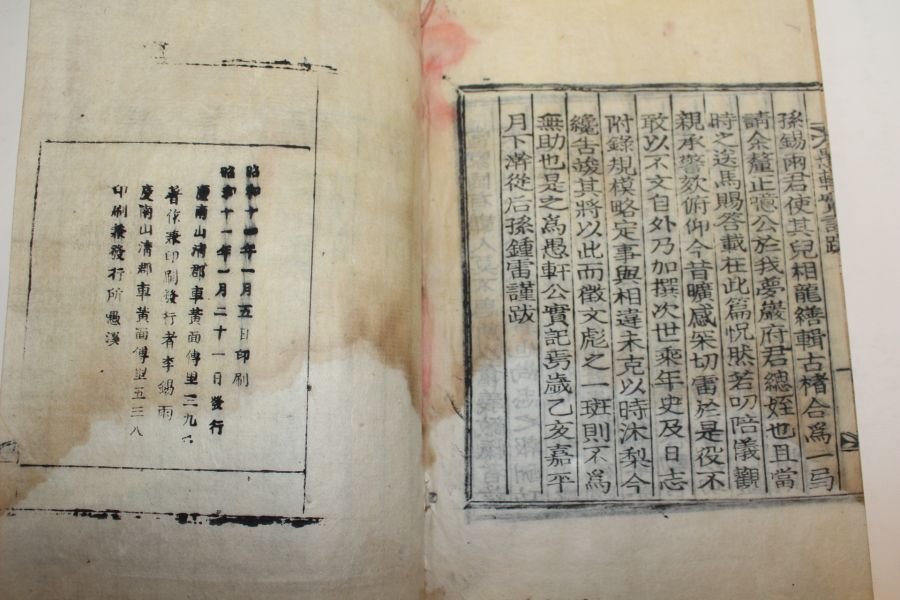 愚軒實記跋
孫錫兩君使其兒相龍繕輯古楮合為一弓
請余釐正噫公於我夢巖府君總姪也且當
時之送馬賜答載在此篇怳然若叨陪儀觀
親承警欬俯仰今昔曠感采切雷於是役不
敢以不文自外乃加撰次世乘年史及日志
附錄規模略定事與相違未克以時沐梨今
纔告竣其將以此而徵文彪之一斑則不為
無助也是之為愚軒公實記焉歲乙亥嘉平
月下澣從后孫鍾雷謹跋
昭和十四年一月五日印刷
昭和十一年一月二十一日發行
慶南山清郡車黃面傅里三九
著作兼印刷發行者李錫雨
慶南山清郡車黃面傅里五三八
印刷兼發行所愚溪